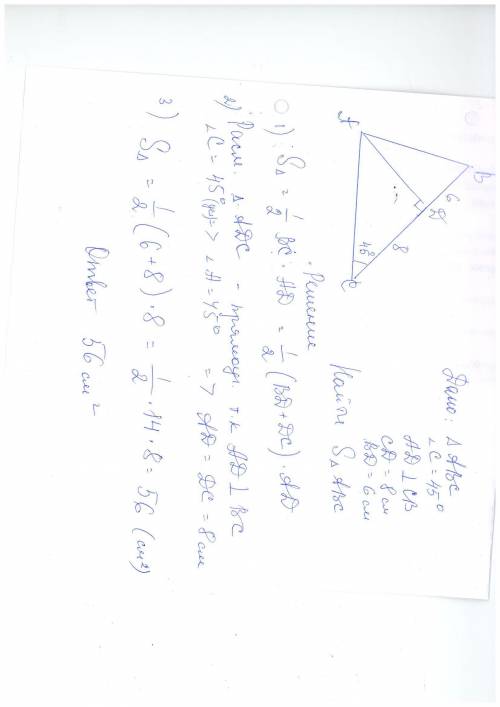 Дано: Δ ABC
∠C = 45°
AD ⊥ CB
CD = 8 см
BD = 6 см
Найти S Δ ABC
A
B
6
D
8
45°
C
Решение
1) SΔ = 1/2 BC · AD = 1/2 (BD + DC) · AD
2) Расм. Δ ADC – прямоуг. т.к AD ⊥ BC
∠C = 45° (ус) => ∠A = 45° => AD = DC = 8 см
3) SΔ = 1/2 (6 + 8) · 8 = 1/2 · 14 · 8 = 56 (см²)
Ответ 56 см²